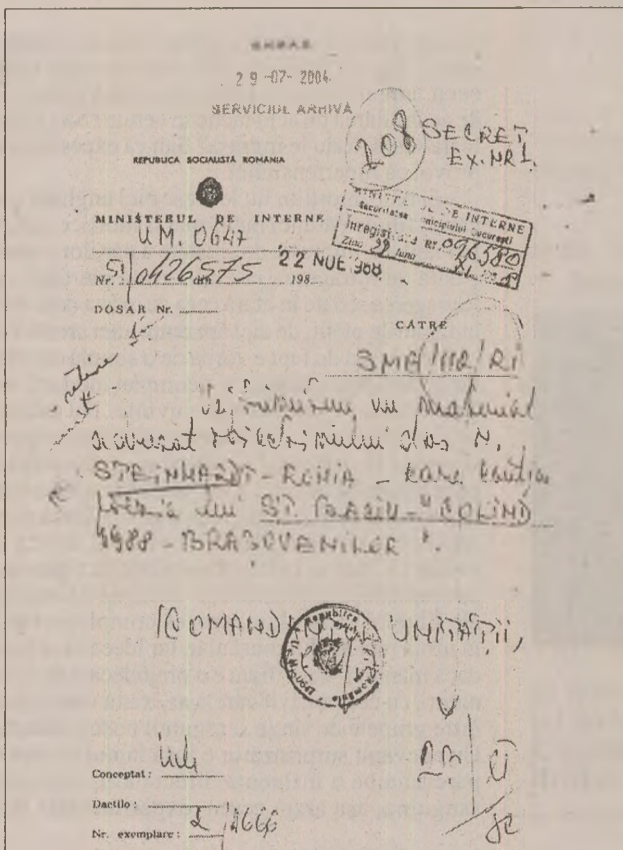 29-07-2004
SERVICIUL ARHIVĂ
208 SECRET
EX. NR 1.
REPUBLICA SOCIALISTĂ ROMÂNIA
MINISTERUL DE INTERNE
U.M. 0647
MINISTERUL DE INTERNE
Securitatea municipiului București
Înregistrată nr. 096580
Ziua 29 luna
Nr. 0426575 din 22 NOE 198
DOSAR Nr.
CĂTRE
Vă trimitem un material
adresat obiectivului dos N.
STEINHARDT - ROHIA - care conține
poezia lui "COLIND
1988 - BRAȘOVENILOR".
COMANDANTUL UNITĂȚII,
Conceptat:
Dactilo:
Nr. exemplare: 2